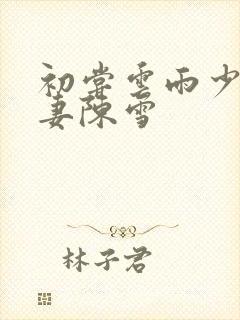 初尝雲雨少
妻陳雪
林子君